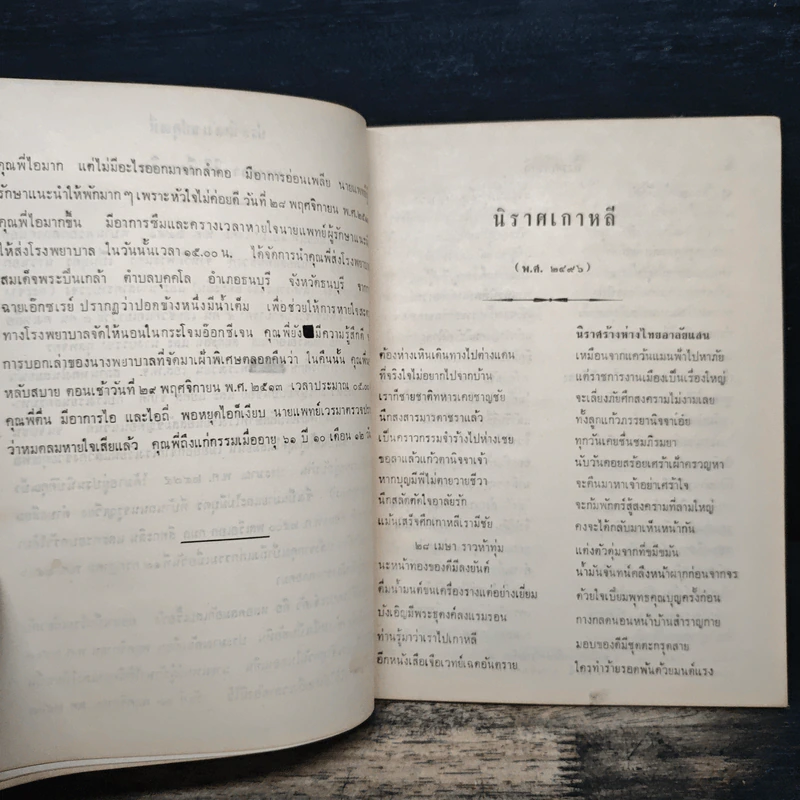 คุณพี่ไอมาก แต่ไม่มีอะไรออกมาจากลำคอ มีอาการอ่อนเพลีย นายแพทย์ผู้
รักษาแนะนำให้พักมาก ๆ เพราะหัวใจไม่ค่อยดี วันที่ ๒๘ พฤศจิกายน พ.ศ.
คุณพี่ไอมากขึ้น มีอาการซึมและครางเวลาหายใจนายแพทย์ผู้รักษาแนะ
ให้ส่งโรงพยาบาล ในวันนั้นเวลา ๑๕.๐๐ น. ได้จัดการนำคุณพี่ส่งโรงพยาบาล
สมเด็จพระปิ่นเกล้า ตำบลบุคคโล อำเภอธนบุรี จังหวัดธนบุรี จาก
ฉายเอ๊กซเรย์ ปรากฏว่าปอดข้างหนึ่งมีน้ำเต็ม เพื่อช่วยให้การหายใจ
ทางโรงพยาบาลจัดให้นอนในกระโจมอ๊อกซีเจน คุณพี่ยังมีความรู้สึกดี
การบอกเล่าของนางพยาบาลที่จัดมาเฝ้าพิเศษตลอดคืนว่า ในคืนนั้น คุณพี่
หลับสบาย ตอนเช้าวันที่ ๒๙ พฤศจิกายน พ.ศ. ๒๕๑๓ เวลาประมาณ
คุณพี่ตื่น มีอาการไอ และไอถี่ พอหยุดไอก็เงียบ นายแพทย์เวรมาตรวจ
ว่าหมดลมหายใจเสียแล้ว คุณพี่ถึงแก่กรรมเมื่ออายุ ๖๑ ปี ๑๐ เดือน ๑๒
นิราศเกาหลี
(พ.ศ. ๒๔๙๖)
นิราศร้างห่างไทยอาลัยแสน
ต้องห่างเหินเดินทางไปต่างแดน เหมือนจากแคว้นแมนฟ้าไปหาภัย
ที่จริงใจไม่อยากไปจากบ้าน แต่ราชการงานเมืองเป็นเรื่องใหญ่
เราก็ชายชาติทหารเคยชาญชัย จะเลี่ยงภัยศึกสงครามไม่งามเลย
นึกสงสารมารดาชราแล้ว ทั้งลูกแก้วภรรยานิจจาเอ๋ย
เป็นคราวกรรมจำร้างไปห่างเชย ทุกวันเคยชื่นชมภิรมยา
ขอลาแล้วแก้วตานิจจาเจ้า นับวันคอยสร้อยเศร้าเฝ้าครวญหา
หากบุญมีพี่ไม่ตายวายชีวา จะคืนมาหาเจ้าอย่าเศร้าใจ
นึกสลัดตัดใจอาลัยรัก จะก้มพักตร์สู้สงครามที่ลามใหญ่
แม้นเสร็จศึกเกาหลีเรามีชัย คงจะได้กลับมาเห็นหน้ากัน
๒๘ เมษา ราวห้าทุ่ม แต่งตัวตุ่มจากที่ขมีขมัน
นะหน้าทองของดีมีลงยันต์ น้ำมันจันทน์คลึงหน้าฝากก่อนจากจร
ดื่มน้ำมนต์ขนเครื่องรางแต่อย่างเยี่ยม ด้วยใจเปี่ยมพุทธคุณบุญครั้งก่อน
บังเอิญมีพระธุดงค์ลงแรมรอน กางกลดนอนหน้าบ้านสำราญกาย
ท่านรู้มาว่าเราไปเกาหลี มอบของดีมีชุดตะกรุดสาย
อีกหนังเสือเจือเวทย์เฉดอันตราย ใครทำร้ายรอดพ้นด้วยมนต์แรง